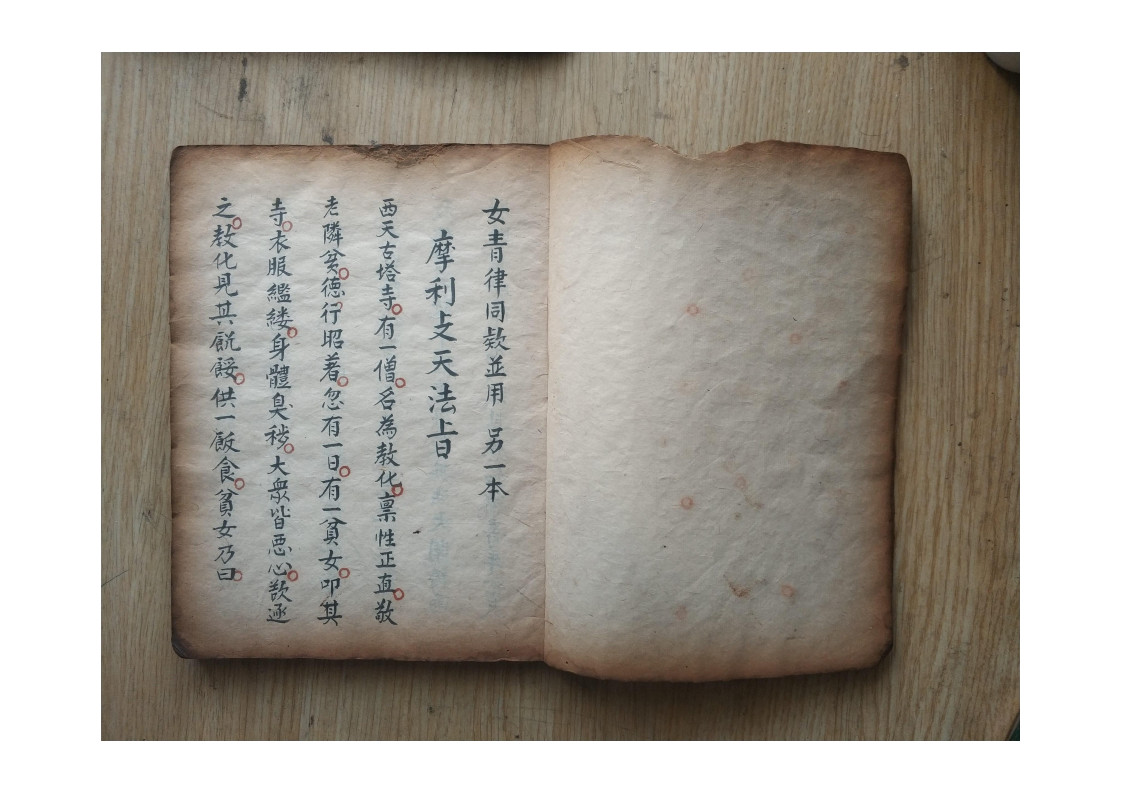 女青律同欵並用 另一本
摩利攴天法旨
西天古塔寺有一僧名為教化禀性正直敬
老隣貧德行昭著忽有一日有一貧女叩其
寺衣服繿縷身體臭穢大衆皆惡心歆逐
之教化見其飢餒供一飯食貧女乃曰